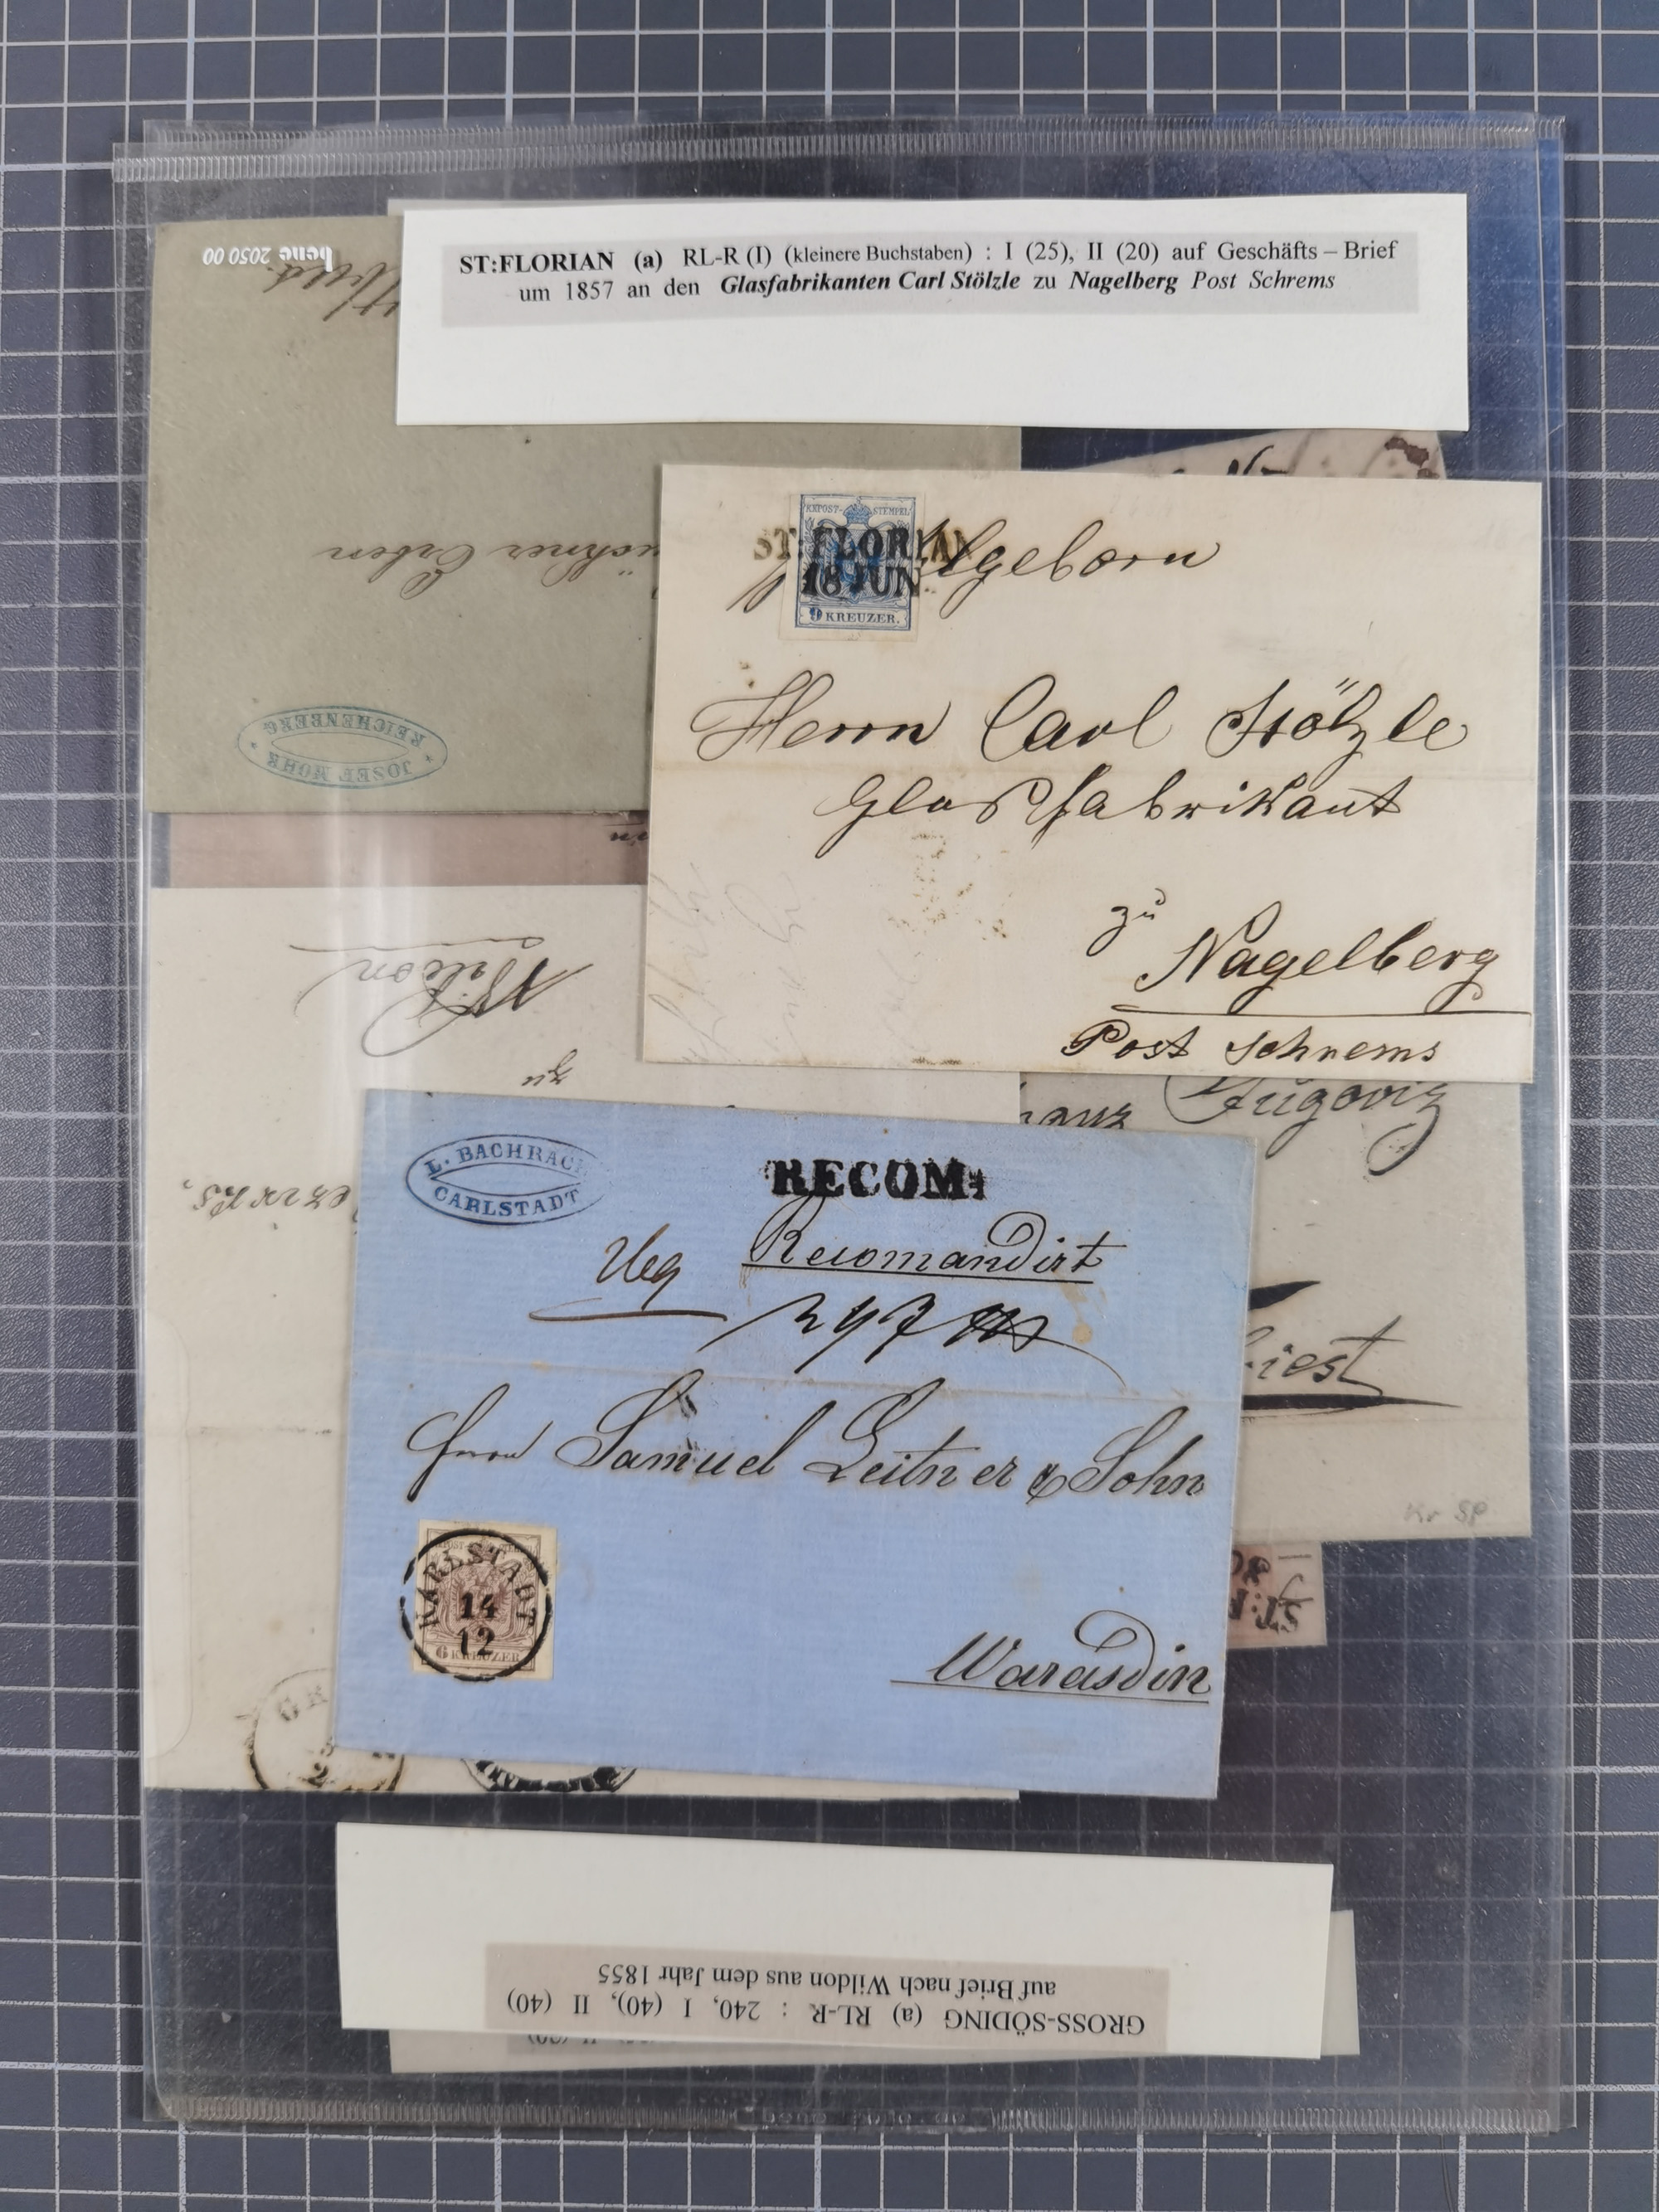 bene 2050 00
ST:FLORIAN (a) RL-R (I) (kleinere Buchstaben) : I (25), II (20) auf Geschäfts – Brief
um 1857 an den Glasfabrikanten Carl Stölzle zu Nagelberg Post Schrems
Erben
JOSEF MOHR
* REICHENBERG *
KKPOST-STEMPEL
ST:FLORIAN
18 JUN
9 KREUZER.
Herrn Carl Stölzle
Glasfabrikant
zu
Nagelberg
Post Schrems
Wildon
zu
L. BACHRACH
CARLSTADT
RECOM:
Recomandirt
Herrn Samuel Leitner & Sohn
KARLSTADT
14
12
6 KREUZER
Warasdin
Kr SP
GROSS-SÖDING (a) RL-R : 240, I (40), II (40)
auf Brief nach Wildon aus dem Jahr 1855